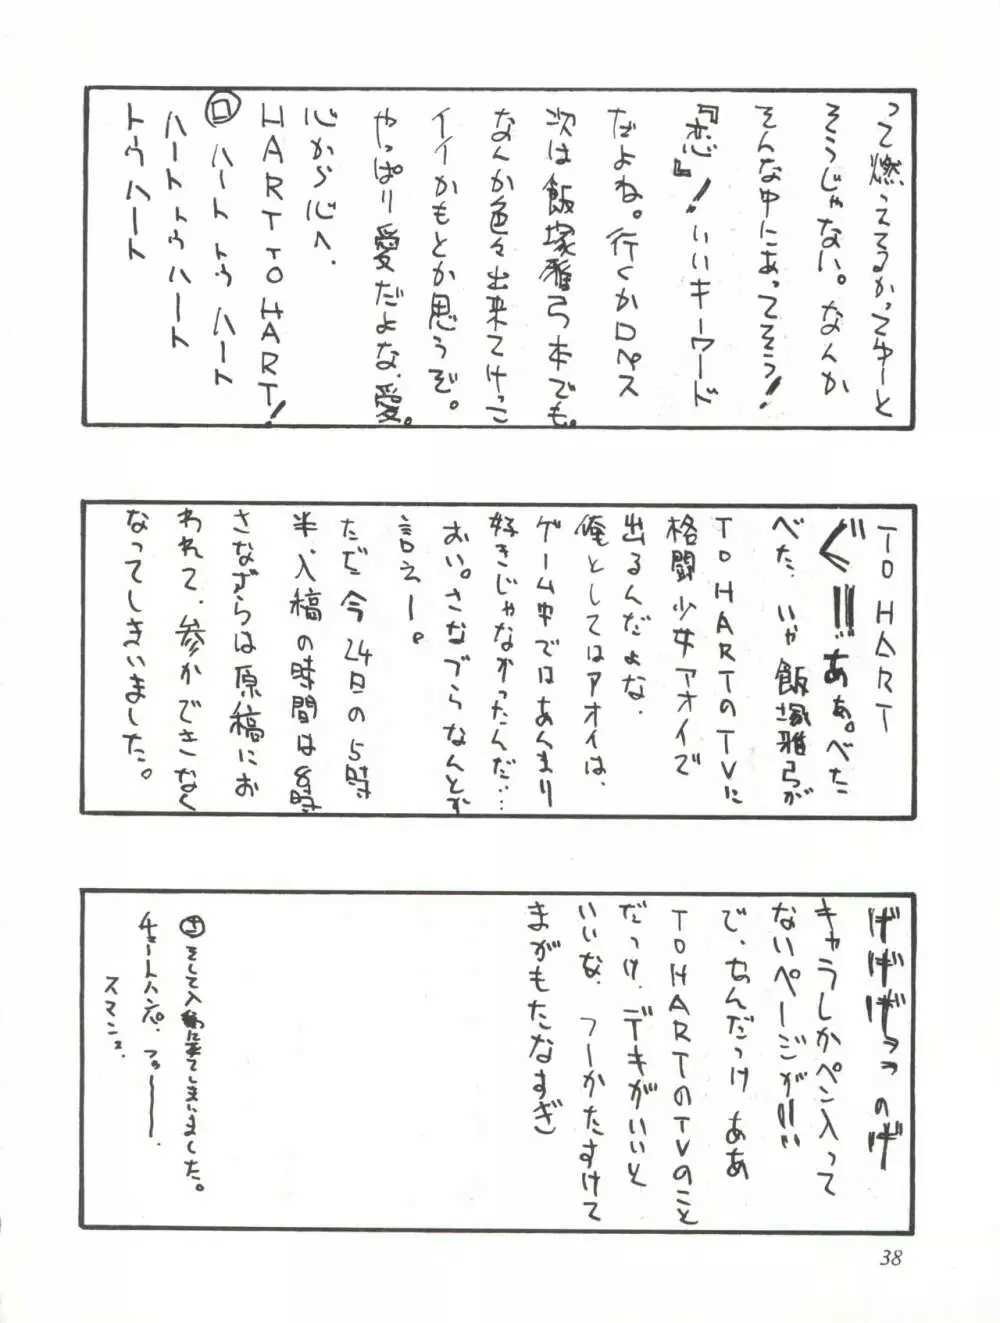 って燃えてるかってゆーと
そうじゃない。なんか
そんな中にあってそう!
『恋』!いいキーワード
だよね。行くかロペス
次は飯塚雅弓本でも。
なんか色々出来てけっこ
イイかもとか思うぞ。
やっぱり愛だよな、愛。
心から心へ、
HART TO HART!
ロ ハート トゥ ハート
ハート トゥ ハート
トゥハート
TO HART
ぐ!!!あぁ。べた
べた、いや飯塚雅弓が
TO HARTのTVに
格闘少女アオイで
出るんだよな、
俺としてはアオイは、
ゲーム中ではあんまり
好きじゃなかったんだ…
おい。さなづらなんとか
言えー。
ただ今24日の5時
半、入稿の時間は8時
さなづらは原稿にお
われて、参かできなく
なってしまいました。
げげげっっのげ
キャラしかペン入って
ないページが!!!
で、なんだっけ ああ
TO HARTのTVのこと
だっけ、デキがいいと
いいな、フーかたすけて
まがもたなすぎ
そして入稿に来てしまいました。
チョートハンパ、フゥ———、
スマン
38